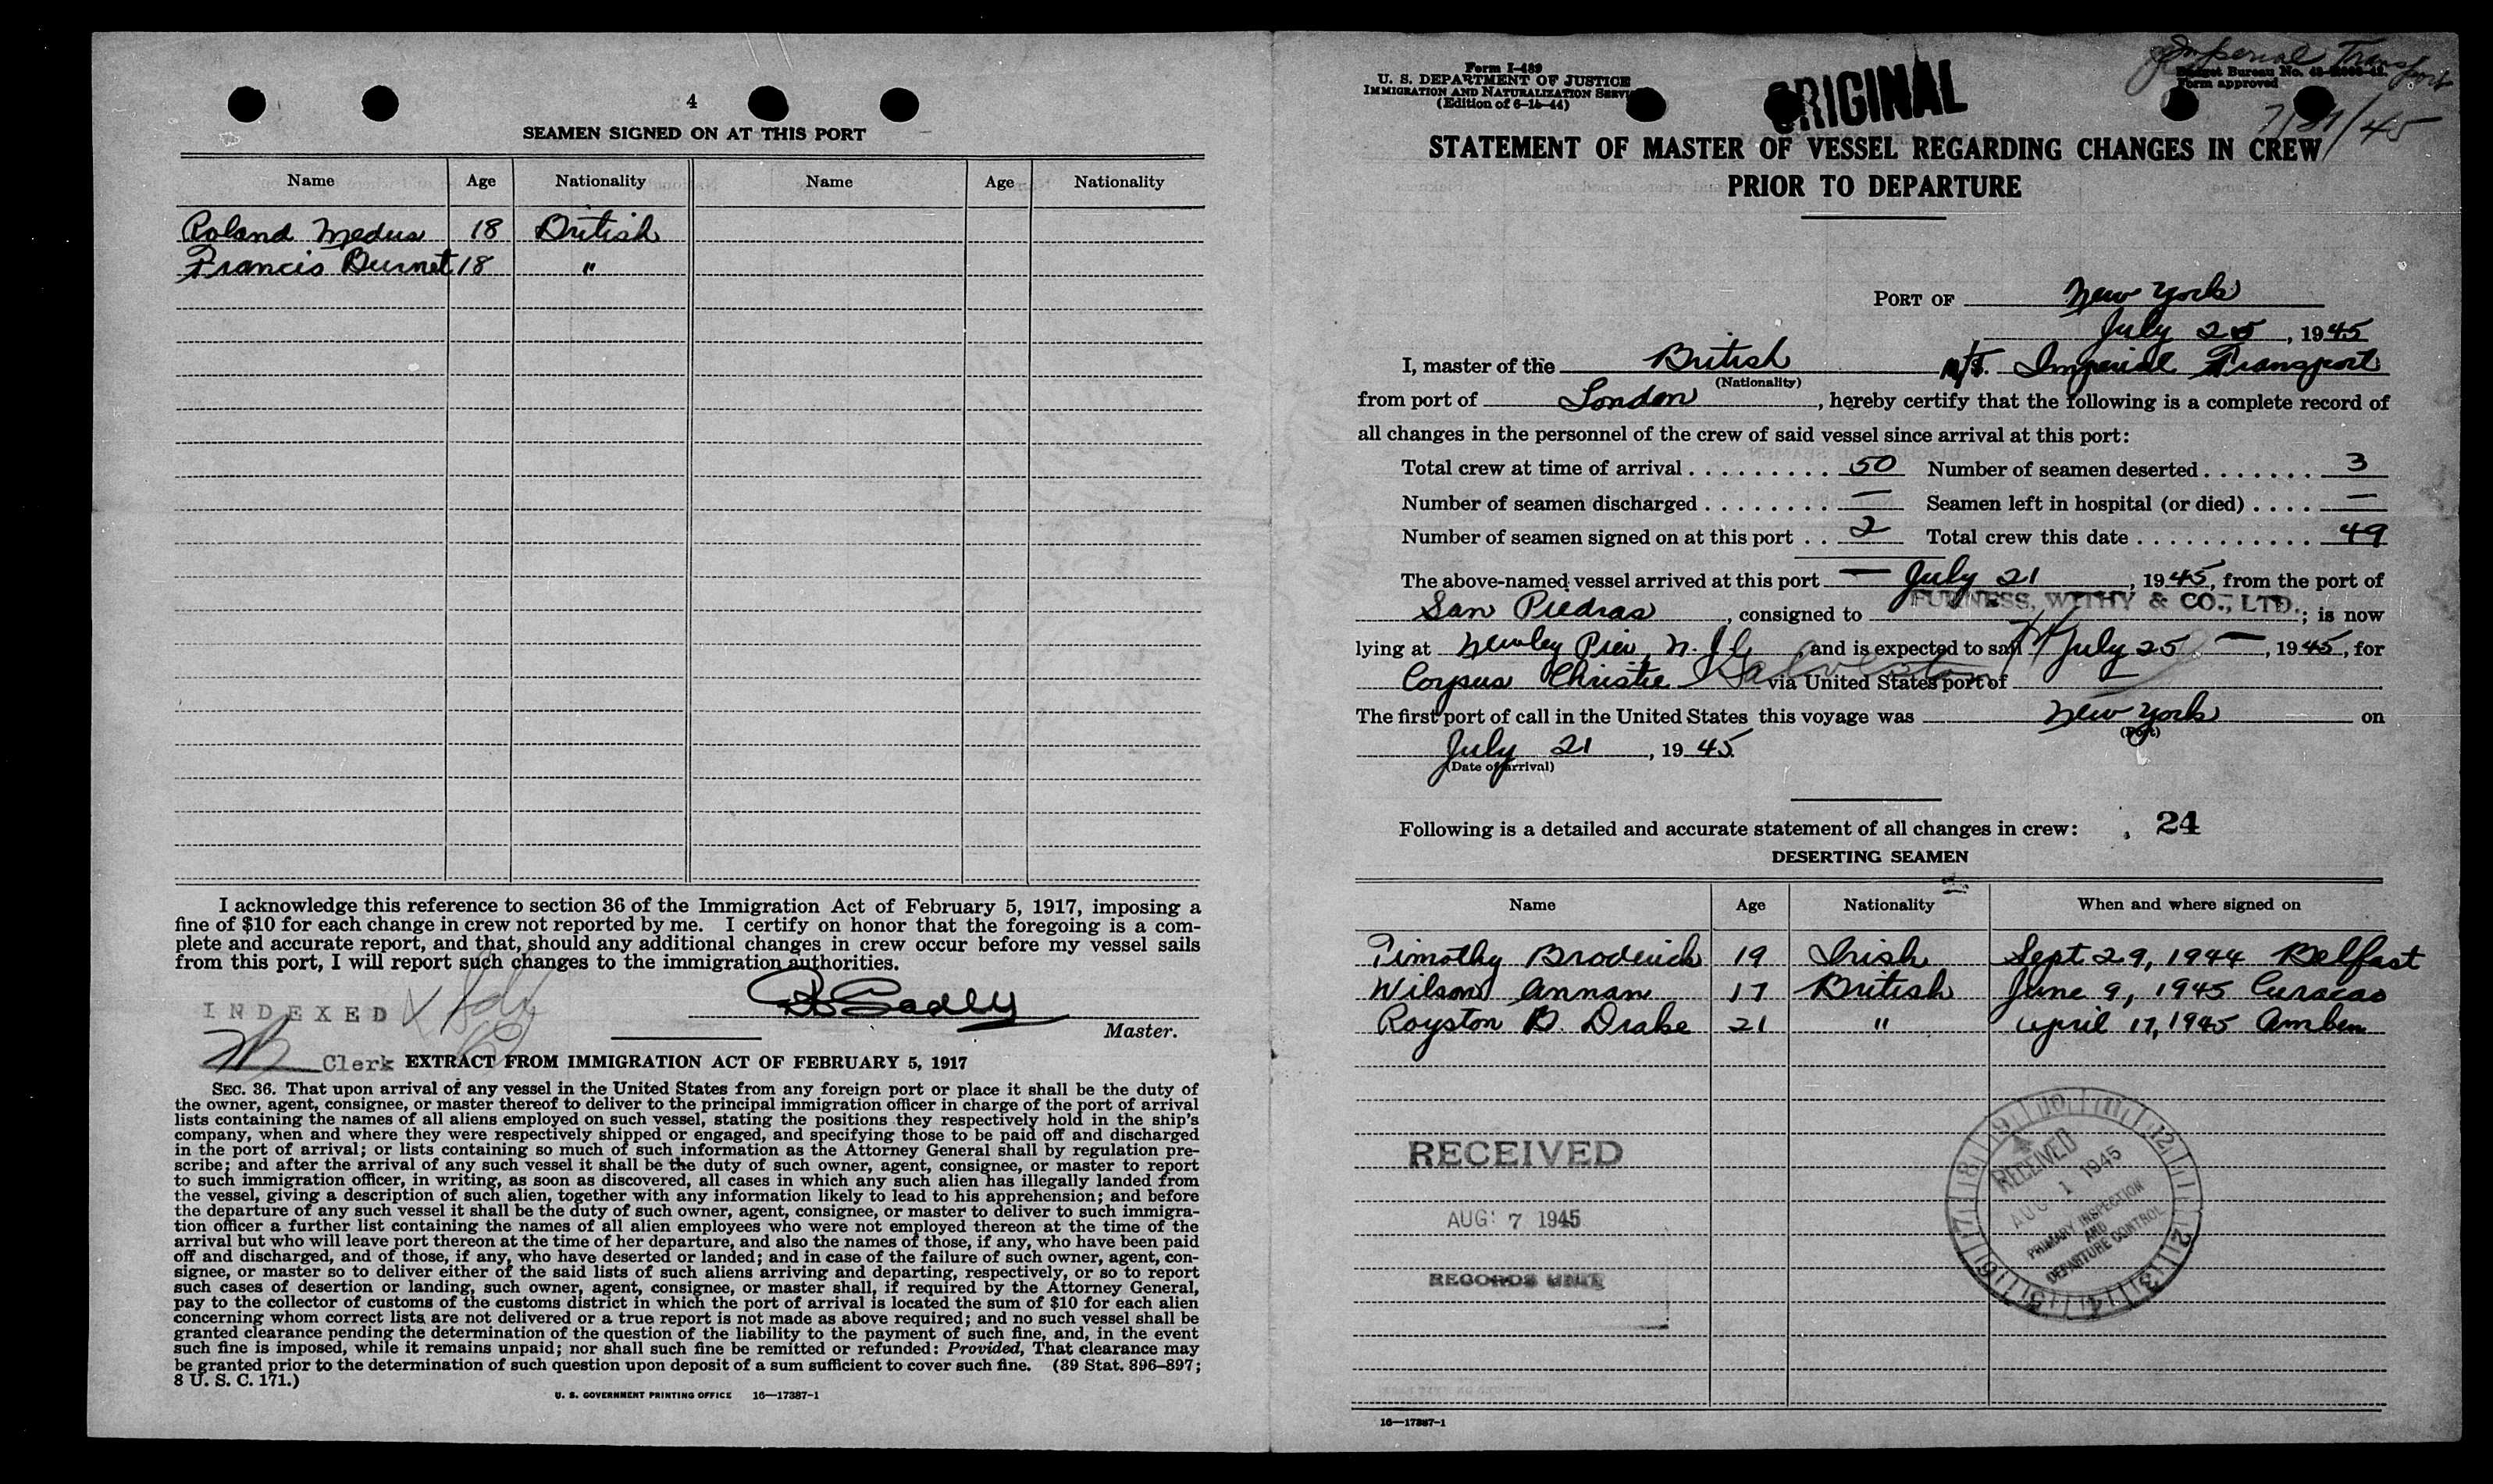 4
SEAMEN SIGNED ON AT THIS PORT
Name Age Nationality Name Age Nationality
Roland Medus 18 British
Francis Burnet 18 "
I acknowledge this reference to section 36 of the Immigration Act of February 5, 1917, imposing a
fine of $10 for each change in crew not reported by me. I certify on honor that the foregoing is a com-
plete and accurate report, and that, should any additional changes in crew occur before my vessel sails
from this port, I will report such changes to the immigration authorities.
INDEXED
Master.
Clerk EXTRACT FROM IMMIGRATION ACT OF FEBRUARY 5, 1917
SEC. 36. That upon arrival of any vessel in the United States from any foreign port or place it shall be the duty of
the owner, agent, consignee, or master thereof to deliver to the principal immigration officer in charge of the port of arrival
lists containing the names of all aliens employed on such vessel, stating the positions they respectively hold in the ship's
company, when and where they were respectively shipped or engaged, and specifying those to be paid off and discharged
in the port of arrival; or lists containing so much of such information as the Attorney General shall by regulation pre-
scribe; and after the arrival of any such vessel it shall be the duty of such owner, agent, consignee, or master to report
to such immigration officer, in writing, as soon as discovered, all cases in which any such alien has illegally landed from
the vessel, giving a description of such alien, together with any information likely to lead to his apprehension; and before
the departure of any such vessel it shall be the duty of such owner, agent, consignee, or master to deliver to such immigra-
tion officer a further list containing the names of all alien employees who were not employed thereon at the time of the
arrival but who will leave port thereon at the time of her departure, and also the names of those, if any, who have been paid
off and discharged, and of those, if any, who have deserted or landed; and in case of the failure of such owner, agent, con-
signee, or master so to deliver either of the said lists of such aliens arriving and departing, respectively, or so to report
such cases of desertion or landing, such owner, agent, consignee, or master shall, if required by the Attorney General,
pay to the collector of customs of the customs district in which the port of arrival is located the sum of $10 for each alien
concerning whom correct lists are not delivered or a true report is not made as above required; and no such vessel shall be
granted clearance pending the determination of the question of the liability to the payment of such fine, and, in the event
such fine is imposed, while it remains unpaid; nor shall such fine be remitted or refunded: Provided, That clearance may
be granted prior to the determination of such question upon deposit of a sum sufficient to cover such fine. (39 Stat. 896–897;
8 U. S. C. 171.)
U. S. GOVERNMENT PRINTING OFFICE 16—17387-1
Imperial Transport
Form I-489
U. S. DEPARTMENT OF JUSTICE
IMMIGRATION AND NATURALIZATION SERVI
(Edition of 6-15-44)
ORIGINAL
Budget Bureau No.
Form approved
7/31/45
STATEMENT OF MASTER OF VESSEL REGARDING CHANGES IN CREW
PRIOR TO DEPARTURE
PORT OF New York
July 25, 1945
I, master of the British M/S. Imperial Transport
(Nationality)
from port of London, hereby certify that the following is a complete record of
all changes in the personnel of the crew of said vessel since arrival at this port:
Total crew at time of arrival 50 Number of seamen deserted 3
Number of seamen discharged — Seamen left in hospital (or died) —
Number of seamen signed on at this port 2 Total crew this date 49
The above-named vessel arrived at this port — July 21, 1945, from the port of
San Piedras, consigned to FURNESS, WITHY & CO., LTD.; is now
lying at Pier, N.J., and is expected to sail July 25 —, 1945, for
Corpus Christie Galveston via United States port of
The first port of call in the United States this voyage was New York on
(Port)
July 21, 1945
(Date of arrival)
Following is a detailed and accurate statement of all changes in crew: 24
DESERTING SEAMEN
Name Age Nationality When and where signed on
Timothy Broderick 19 Irish Sept 29, 1944 Belfast
Wilson Annan 17 British June 9, 1945 Curacao
Royston B. Drake 21 " April 17, 1945
RECEIVED
AUG 7 1945
RECORDS UNIT
RECEIVED
AUG 1 1945
PRIMARY INSPECTION
AND
DEPARTURE CONTROL
16—17387-1